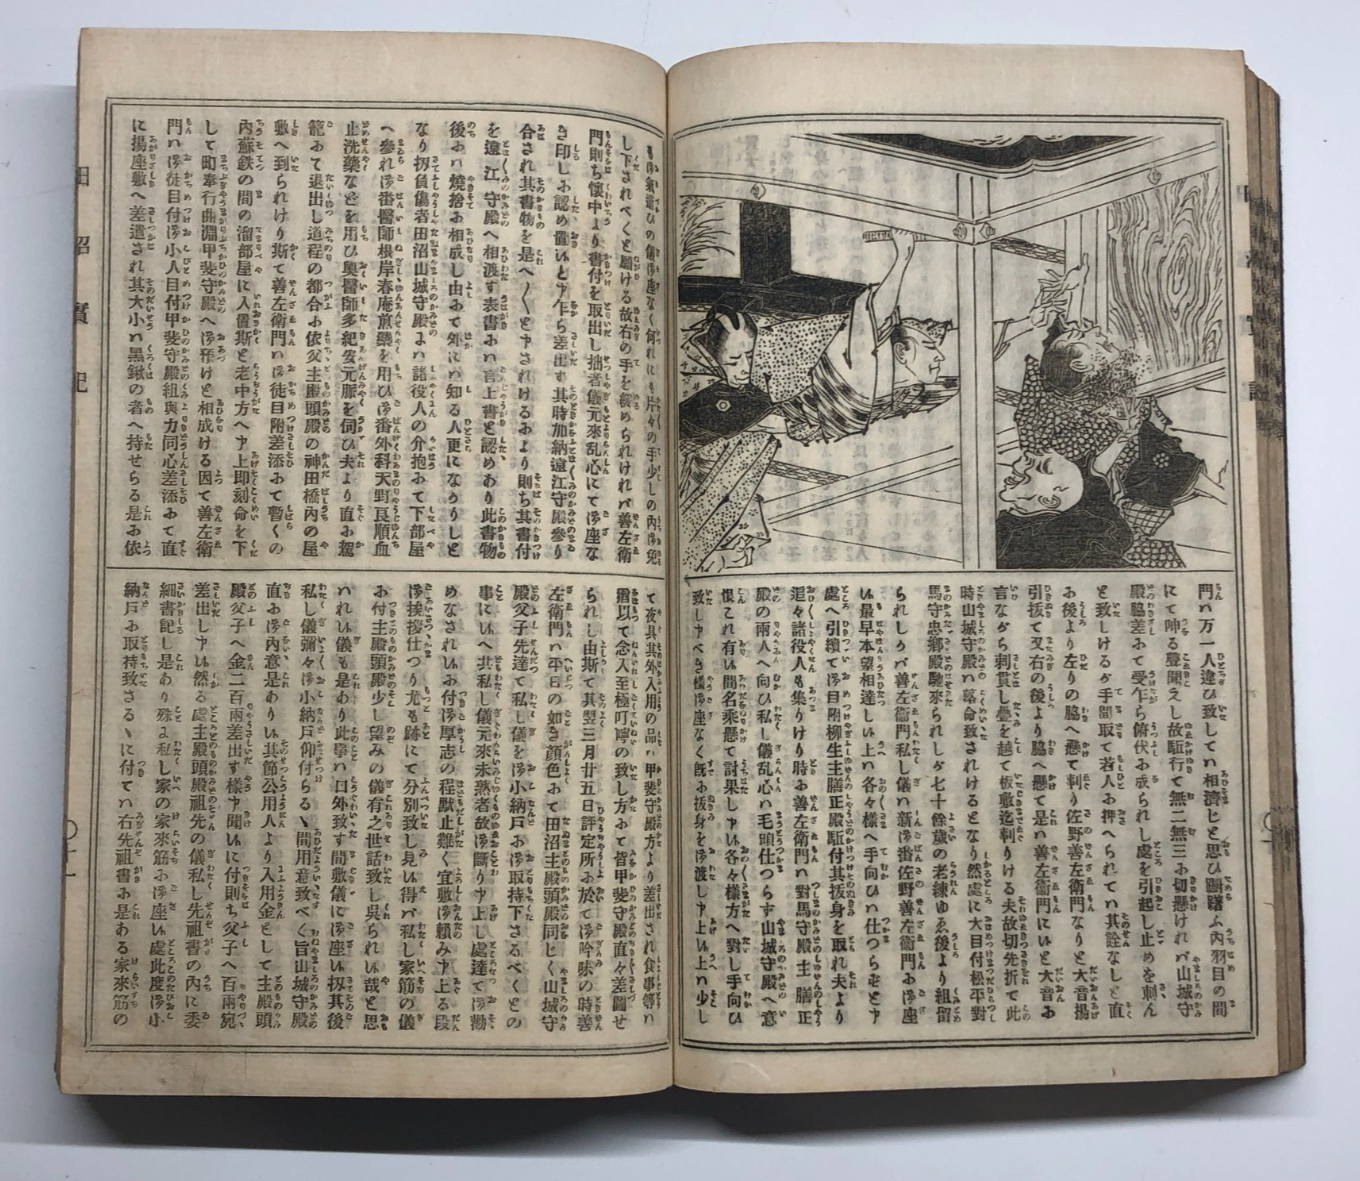 門ハ万一人違ひ致してハ相濟じと思ひ躊躇ふ內羽目の間
にて呻る聲聞えし故駈行て無二無三に切懸けれバ山城守
殿脇差にて受乍ら俯伏に成られし處を引起し止めを刺ん
と致しけるが手間取て若人に押へられてハ其詮なしと直
に後より左りの脇へ懸て刺り佐野善左衛門なりと大音揚
引拔て又右の後より脇へ懸て是ハ善左衛門にいと大音に
言ながら刺貫し疊を越て板敷迄刺りける夫故切先折て此
時山城守殿ハ落命致されけるとなり然處に大目付松平對
馬守忠鄕殿馳來られしが七十餘歲の老練ゆゑ後より組留
られしかバ善左衞門私し儀ハ新御番佐野善左衛門に御座
い最早本望相達しい上ハ各々樣へ手向ひハ仕つらずと申
處へ引續て御目附柳生主膳正殿駈付其拔身を取れ夫より
追々諸役人も集りけり時に善左衛門ハ對馬守殿主膳正
殿の兩人へ向ひ私し儀亂心ハ毛頭仕つらず山城守殿へ意
恨これ有い間名乘懸て討果し申い各々樣方へ對し手向ひ
致し申べき樣御座なく旣に拔身を御渡し申上い上ハ少し
し下されべくと願ける故右の手を緩められけれバ善左衛
門則ち懷中より書付を取出し拙者儀元來乱心にて御座な
き印しに認め置いと申乍ら差出す其時加納遠江守殿參り
合され其書物を是へ〳〵と申されけるにより則ち其書付
を遠江守殿へ相渡す表書にハ言上書と認めあり此書物
後にハ燒捨に相成し由にて外にハ知る人更になかりしと
なり扨負傷者田沼山城守殿にハ諸役人の介抱にて下部屋
へ參れ御番醫師根岸春庵煎藥を用ひ御番外科天野良順血
止洗藥などを用ひ奧醫師多紀安元脈を伺ひ夫より直に駕
籠にて退出し道程の都合に依父主殿頭殿の神田橋內の屋
敷へ到られけり斯て善左衛門ハ御徒目附差添にて暫くの
內蘇鉄の間の溜部屋に入置斯と老中方へ申上卽刻命を下
して町奉行曲淵甲斐守殿へ御預けと相成ける因て善左衛
門ハ御徒目付御小人目付甲斐守殿組與力同心差添にて直
に揚座敷へ差遣され其大小ハ黑鍬の者へ持せらる是に依
て夜具其外入用の品ハ甲斐守殿方より差出され食事等ハ
られし由斯て其翌三月廿五日評定所に於て御吟味の時善
左衛門ハ平日の如き顏色にて田沼主殿頭殿同じく山城守
殿父子先達て私し儀を御小納戶に御取持下さるべくとの
事にい へ共私し儀元來未熟者故御斷り申上し處達て御勸
めなされいに付御厚志の程默止難く宜敷御賴み申上る段
御挨拶仕つり尤も跡にて分別致し見い得バ私し家筋の儀
に付主殿頭殿少し望みの儀有之世話致し吳られい哉と思
ハれい儀も是あり此擧ハ口外致す間敷儀に御座い扨其後
私し儀彌々御小納戶仰付らるゝ間用意致べく旨山城守殿
直に御內意是ありい其節公用人より入用金として主殿頭
殿父子へ金二百兩差出す樣申聞いに付則ち父子へ百兩宛
差出し申い然る處主殿頭殿祖先の儀私し先祖書の內に委
細書記し是あり殊に私し家の家來筋に御座い處此度御小
納戶に取持致さるゝに付てハ右先祖書に是ある家來筋の
田沼實記